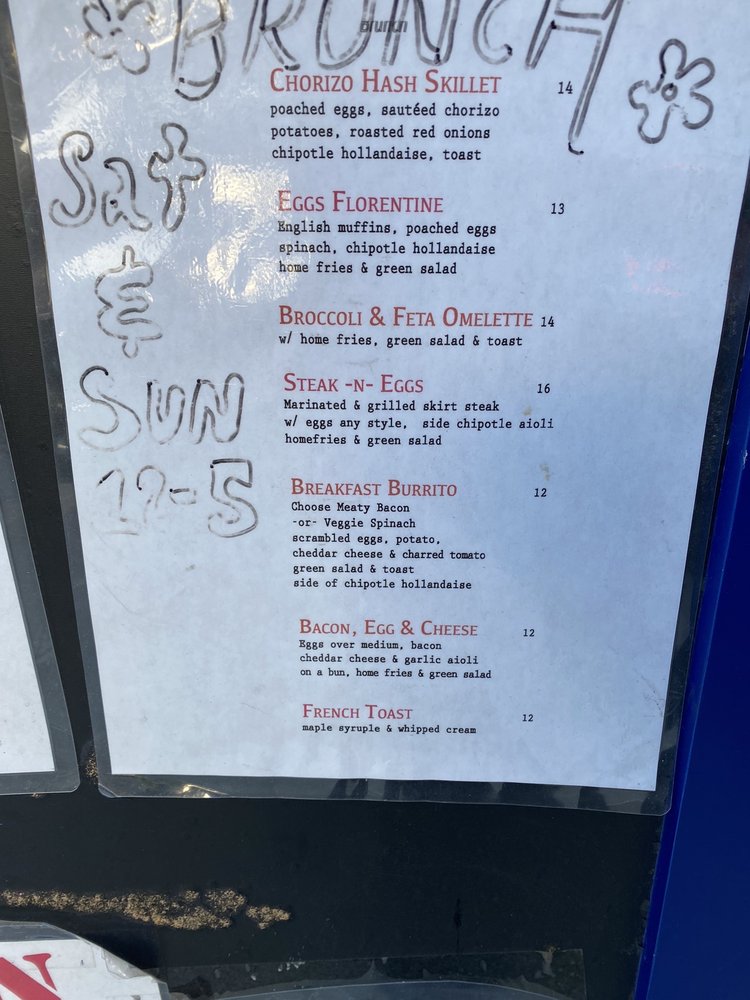 BRUNCH
Brunch
CHORIZO HASH SKILLET 14
poached eggs, sautéed chorizo
potatoes, roasted red onions
chipotle hollandaise, toast
Sat
&
SUN
12-5
EGGS FLORENTINE 13
English muffins, poached eggs
spinach, chipotle hollandaise
home fries & green salad
BROCCOLI & FETA OMELETTE 14
w/ home fries, green salad & toast
STEAK -N- EGGS 16
Marinated & grilled skirt steak
w/ eggs any style, side chipotle aioli
homefries & green salad
BREAKFAST BURRITO 12
Choose Meaty Bacon
-or- Veggie Spinach
scrambled eggs, potato,
cheddar cheese & charred tomato
green salad & toast
side of chipotle hollandaise
BACON, EGG & CHEESE 12
Eggs over medium, bacon
cheddar cheese & garlic aioli
on a bun, home fries & green salad
FRENCH TOAST 12
maple syruple & whipped cream
N